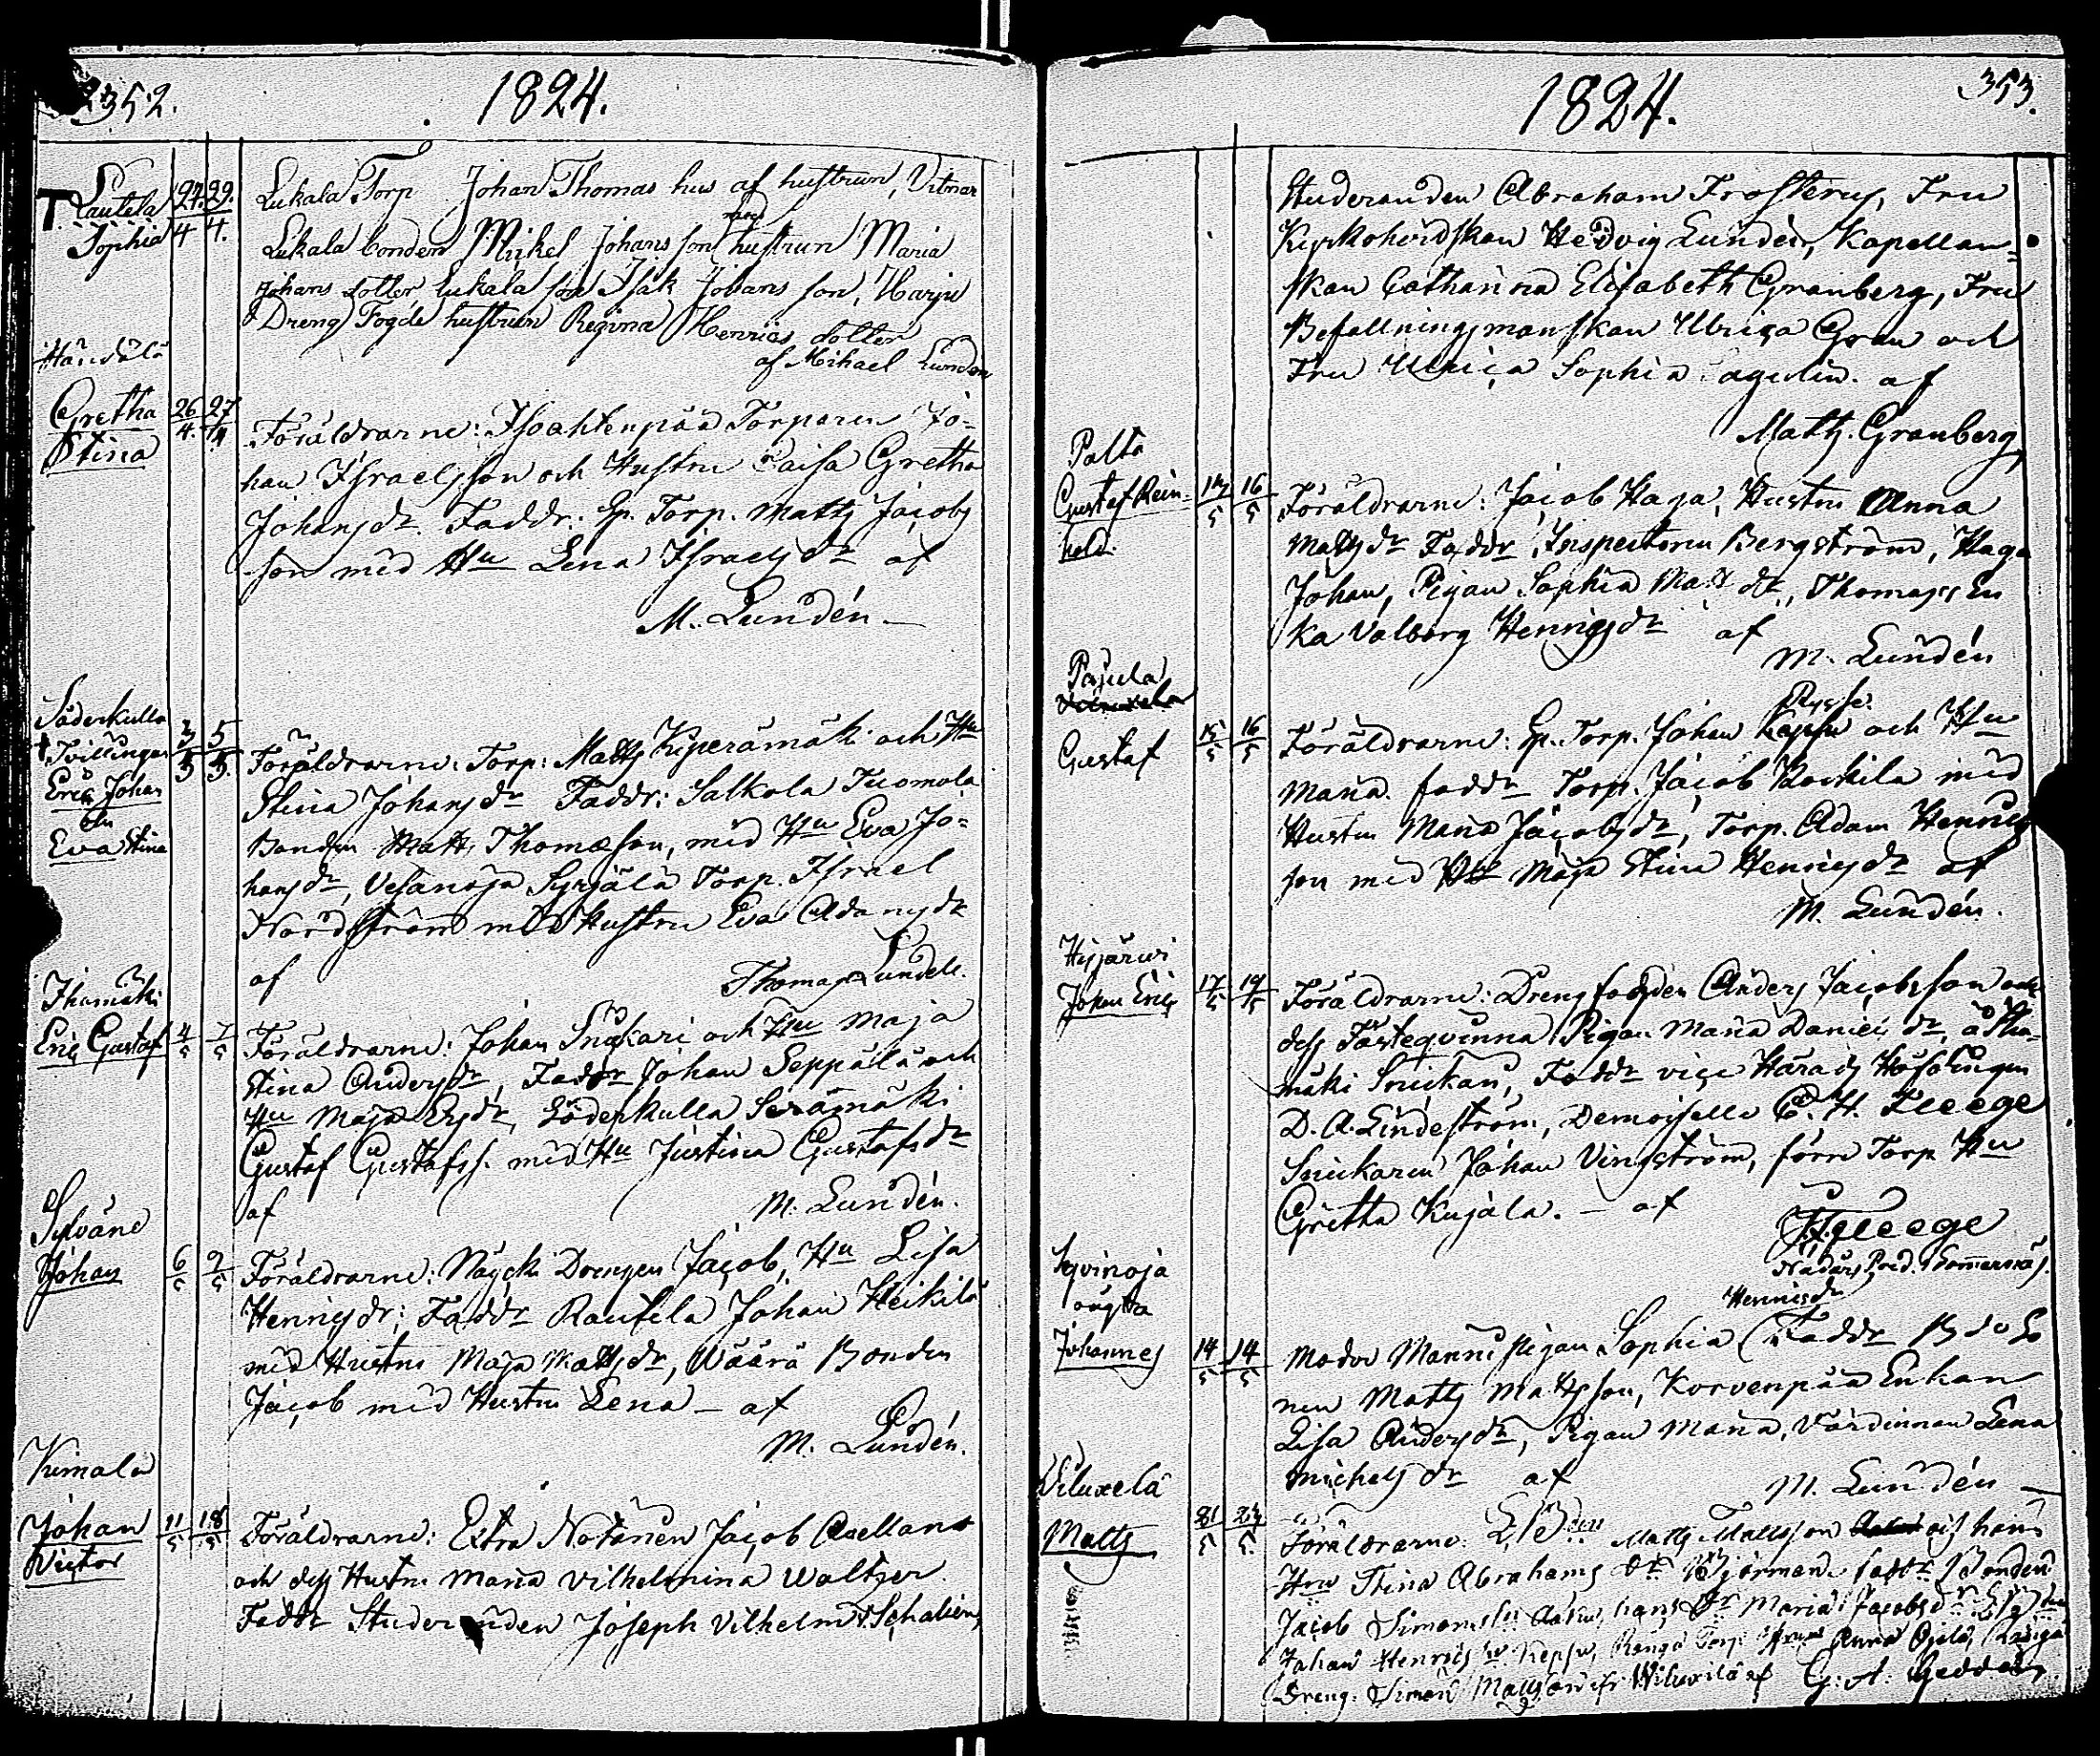 352.
1824.
Rautela
Sophia
27. 29.
4 4.
Lukala Torp Johan Thomas hus af hustrun, Vitnar
Lukala bonden Mickel Johans son med hustrun Maria
Johans dotter Lukala son Isak Johans son, Harju
Dreng Fogde hustrun Regina Henrics dotter
af Michael Lunden
Händälä
Gretha
Stina
26 27
4. 4
Föräldrarne: Isoahlenpää Torparen Jo=
han Israelsson och Hustru Caisa Gretha
Johansdr Faddr: Sp. Torp. Matts Jacobs
son med Hu Lena Israelsdr af
M. Lundén
Söderkulla
Tvillingar
Eric Johan
och
Eva Stina
3 5
5 5.
Föräldrarne: Torp: Matts Kiperämäki och Hu
Stina Johansdr Faddr: Salkola Tuomola
Bonden Matts Thomasson, med Hu Eva Jo=
hansdr, Vesanoja Syrjälä Torp. Israel
Nordström med Hustru Eva Adamsdr
af Thomas Lundell.
Ihamäki
Eric Gustaf
4 7
5 5
Föräldrarne: Johan Snikari och Hu Maja
Stina Andersdr, Faddr Johan Seppälä och
Hu Maja Ersdr, Söderkulla Serämäki
Gustaf Gustafss. med Hu Justina Gustafsdr
af M. Lundén.
Sylvänä
Johan
6 9
5 5
Föräldrarne: Näycki Drengen Jacob, Hu Lisa
Henricsdr; Faddr Rautela Johan Heikilä
med Hustru Maja Mattsdr, Wäärä Bonden
Jacob med Hustru Lena – af
M. Lundén.
Kimala
Johan
Victor
11 18
5 5
Föräldrarne: Extra Notarien Jacob Avellan
och dess Hustru Maria Vilhelmina Waltzer.
Faddr Studeranden Joseph Vilhelm Schalien,
1824.
353.
Studeranden Abraham Frosterus, Fru
Kyrkoherdskan Hedvig Lundén, Kapellan=
skan Catharina Elisabeth Granberg, Fru
Befallningsmanskan Ulrica Gran och
Fru Ulrica Sophia agelin. af
Matts. Granberg
Palta
Gustaf Rein=
hold.
14 16
5 5
Föräldrarne: Jacob Haga, Hustru Anna
Mattsdr Faddr, Inspectoren Bergström, Haga
Johan, Pigan Sophia Matsdr, Thomass En
ka Valborg Henricsdr af
M. Lundén
Pajula
Gustaf
15 16
5 5
Föräldrarne: Sp. Torp. Johan Keppu och Hu
Maria. faddr Torp. Jacob Kockila med
Hustru Maria Jacobsdr, Torp. Adam Henrics
son med Hu Maja Stina Henricsdr af
M. Lundén.
Hijärvi
Johan Eric
17 19
5 5
Föräldrarne: Drengfogden Anders Jacobsson och
dess Fästeqvinna Pigan Maria Danielsdr, å Iha=
mäki Snickari, Faddr vice Härads Höfdingen
D. A. Lindeström, Demoiselle C. H. Fleege
Snickaren Johan Vingström, förre Torp Hu
Gretha Kujala. – af
Fleege
Nådårs Pred. i Sommarnäs.
Johannes
14 14
5 5
Henricsdr
Modor Manni pigan Sophia Faddr
nen Matts Mattsson, Korvenpää Enkan
Lisa Andersdr, Pigan Maria, Värdinnan Lena
Michelsdr af M. Lundén
Viluxela
Matts
21 24
5 5.
Föräldrarne. Matts Mattsson och hans
Hru Stina Abrahams Dr Björman. faddr Bonden
Jacob Simonsson hans Hr Maria Jacobsdr
Johan Henrics Keppu, Ranga Torp Hrus Anna Ojala,
Dreng. Simon Mattsson ifr Wiluxela af G. A. Geddda